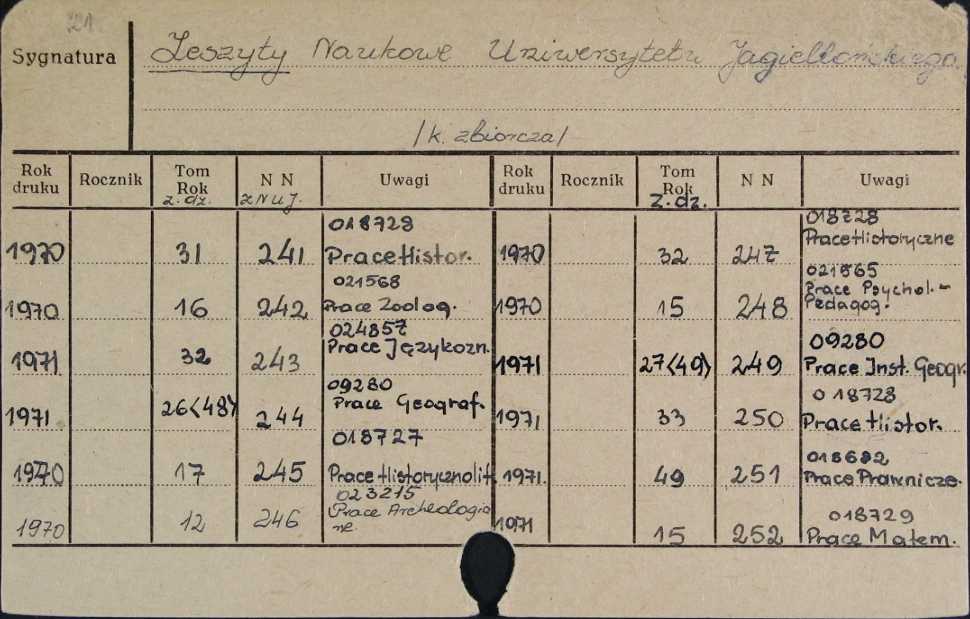 21.
Sygnatura Zeszyty Naukowe Uniwersytetu Jagiellońskiego.
/k. zbiorcza/
Rok druku Rocznik Tom Rok z. dz. N N z NUJ. Uwagi Rok druku Rocznik Tom Rok z. dz. N N Uwagi
1970 31 241 018728 Prace Histor.
1970 16 242 021568 Prace Zoolog.
1971 32 243 024857 Prace Językozn.
1971 26(48) 244 09280 Prace Geograf.
1970 17 245 018727 Prace Historycznolit.
1970 12 246 023215 Prace Archeologiczne.
1970 32 247 018728 Prace Historyczne
1970 15 248 021865 Prace Psychol.-Pedagog.
1971 27(49) 249 09280 Prace Inst. Geogr.
1971 33 250 018728 Prace Histor.
1971. 49 251 018692 Prace Prawnicze.
1971 15 252 018729 Prace Matem.